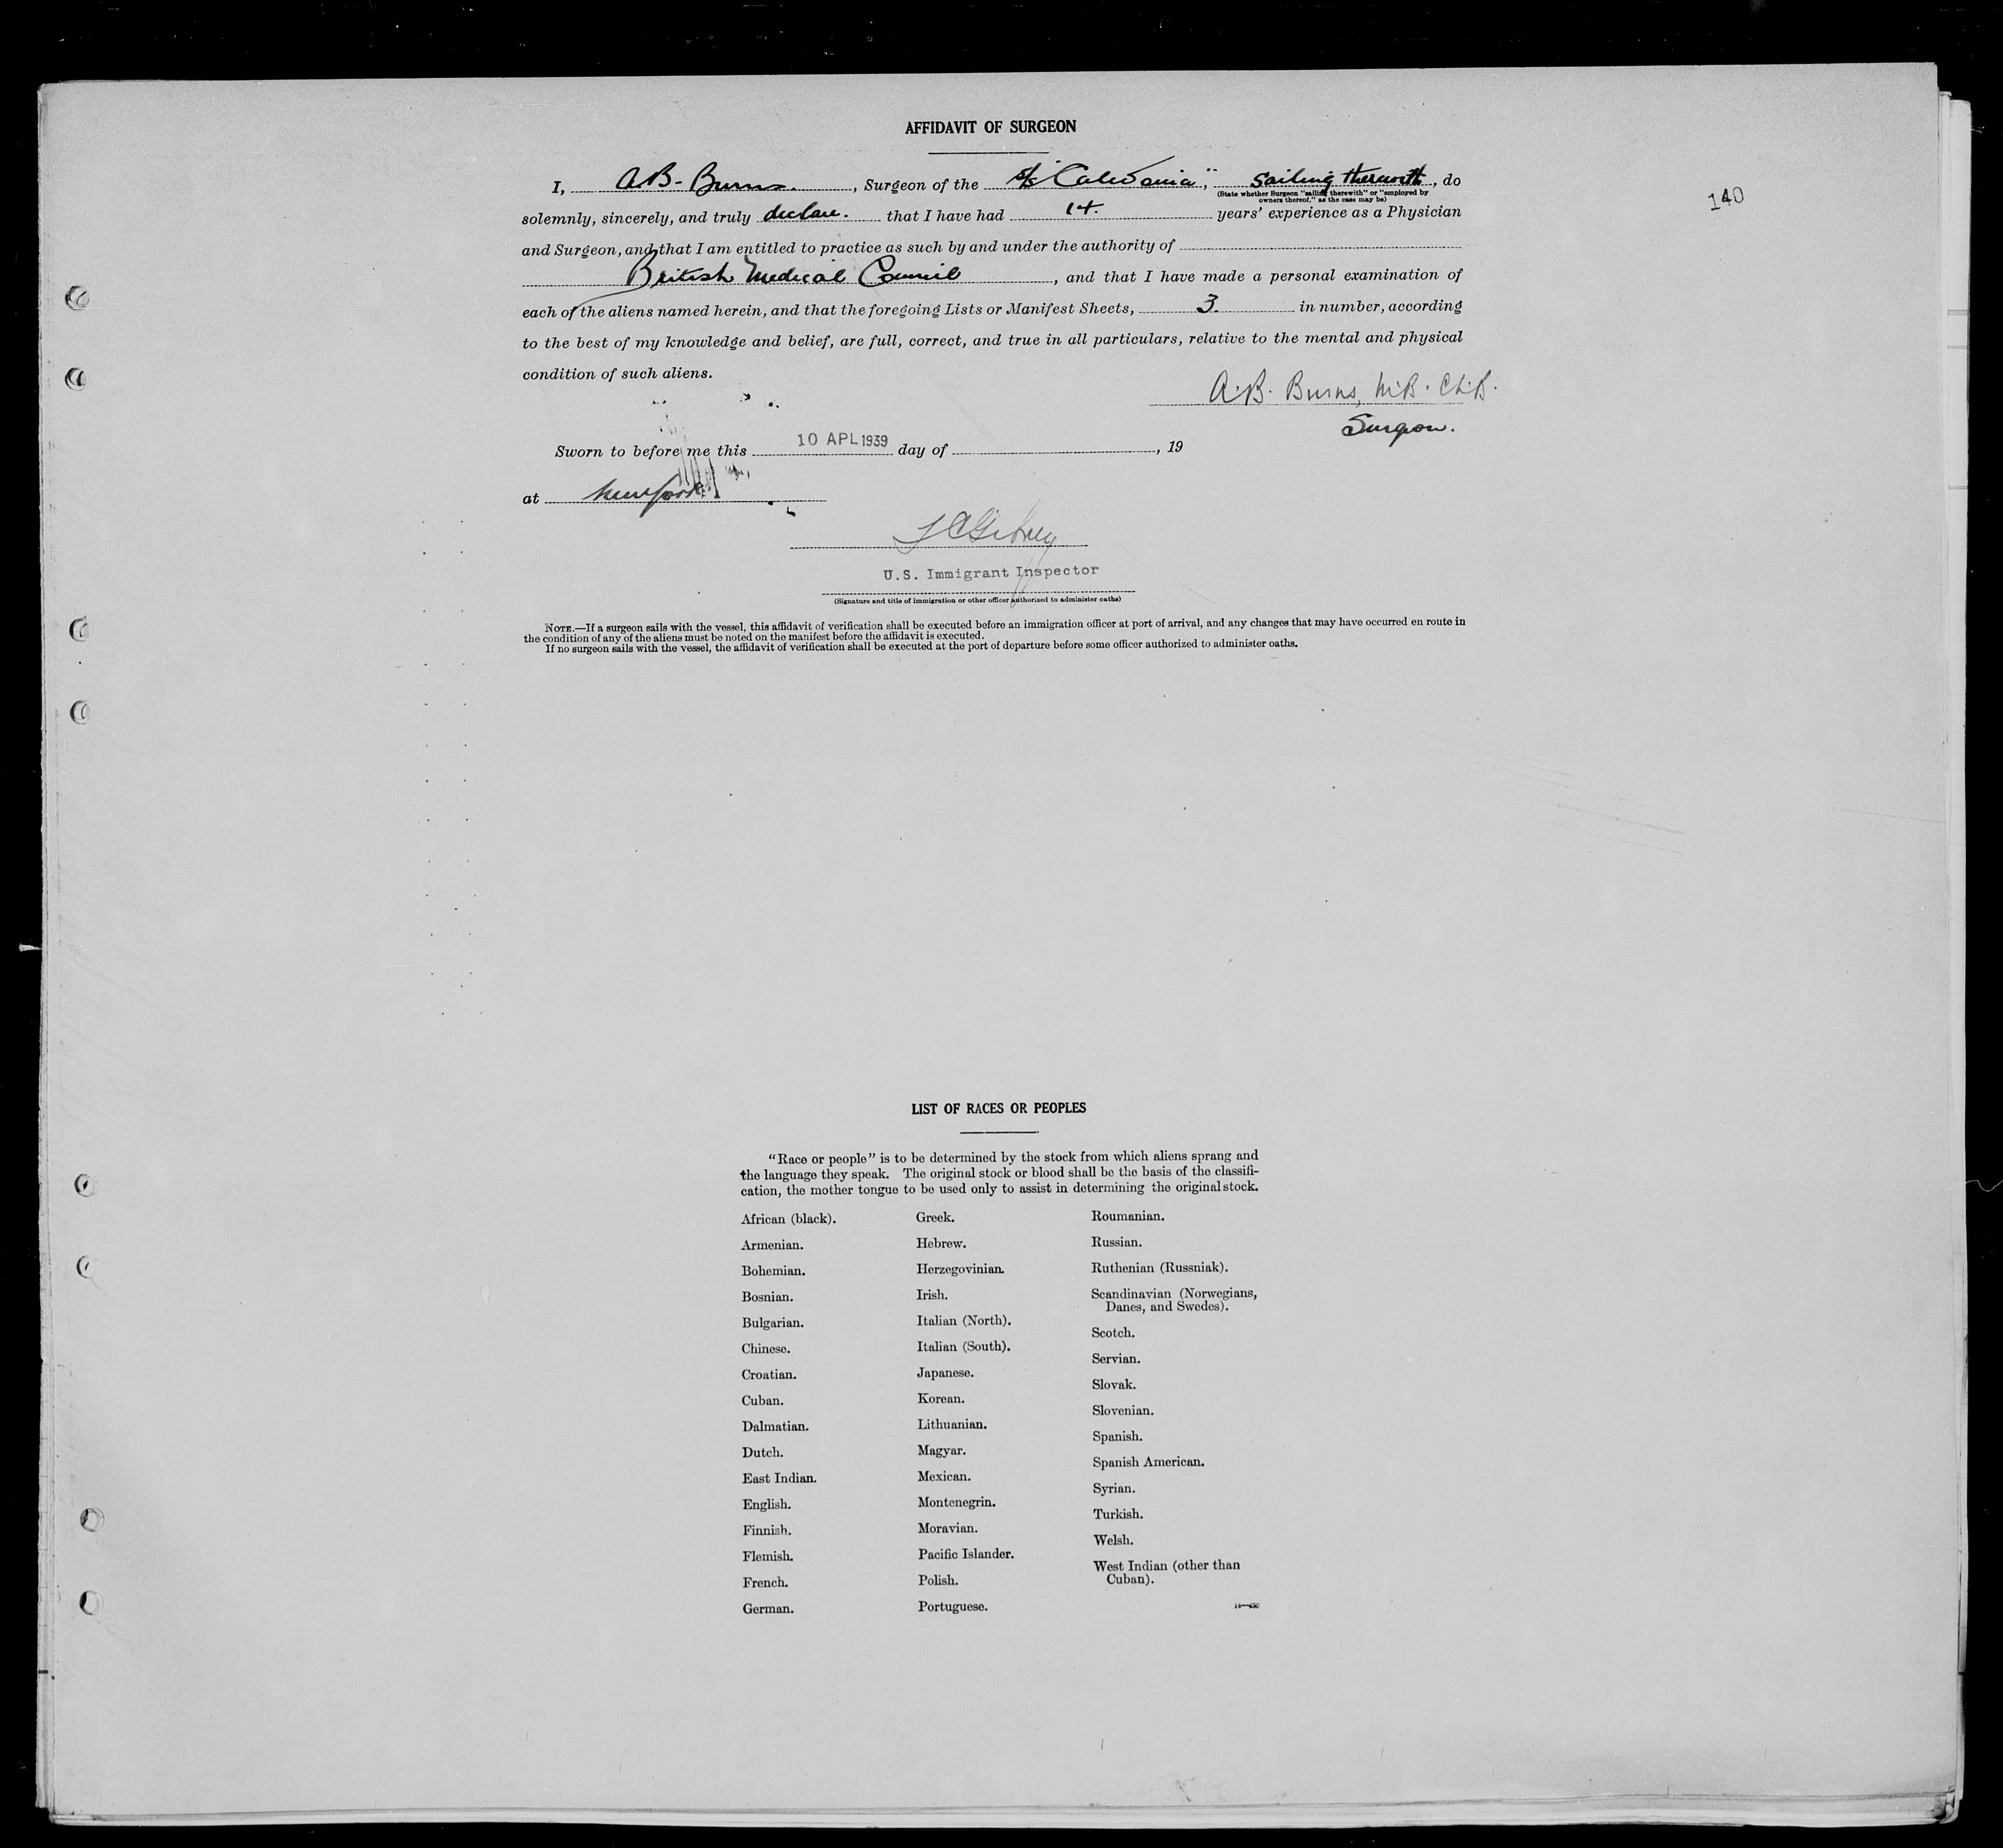 AFFIDAVIT OF SURGEON
140
I, A.B. Burns., Surgeon of the s/s "Caledonia", Sailing therewith, do
(State whether Surgeon "sailing therewith" or "employed by
owners thereof," as the case may be)
solemnly, sincerely, and truly declare. that I have had 14. years' experience as a Physician
and Surgeon, and that I am entitled to practice as such by and under the authority of
British Medical Council, and that I have made a personal examination of
each of the aliens named herein, and that the foregoing Lists or Manifest Sheets, 3. in number, according
to the best of my knowledge and belief, are full, correct, and true in all particulars, relative to the mental and physical
condition of such aliens.
A.B. Burns, M.B. Ch.B.
Surgeon.
Sworn to before me this 10 APL 1939 day of , 19
at New York
U.S. Immigrant Inspector
(Signature and title of immigration or other officer authorized to administer oaths)
NOTE.—If a surgeon sails with the vessel, this affidavit of verification shall be executed before an immigration officer at port of arrival, and any changes that may have occurred en route in
the condition of any of the aliens must be noted on the manifest before the affidavit is executed.
If no surgeon sails with the vessel, the affidavit of verification shall be executed at the port of departure before some officer authorized to administer oaths.
LIST OF RACES OR PEOPLES
"Race or people" is to be determined by the stock from which aliens sprang and
the language they speak. The original stock or blood shall be the basis of the classifi-
cation, the mother tongue to be used only to assist in determining the original stock.
African (black).
Armenian.
Bohemian.
Bosnian.
Bulgarian.
Chinese.
Croatian.
Cuban.
Dalmatian.
Dutch.
East Indian.
English.
Finnish.
Flemish.
French.
German.
Greek.
Hebrew.
Herzegovinian.
Irish.
Italian (North).
Italian (South).
Japanese.
Korean.
Lithuanian.
Magyar.
Mexican.
Montenegrin.
Moravian.
Pacific Islander.
Polish.
Portuguese.
Roumanian.
Russian.
Ruthenian (Russniak).
Scandinavian (Norwegians,
Danes, and Swedes).
Scotch.
Servian.
Slovak.
Slovenian.
Spanish.
Spanish American.
Syrian.
Turkish.
Welsh.
West Indian (other than
Cuban).